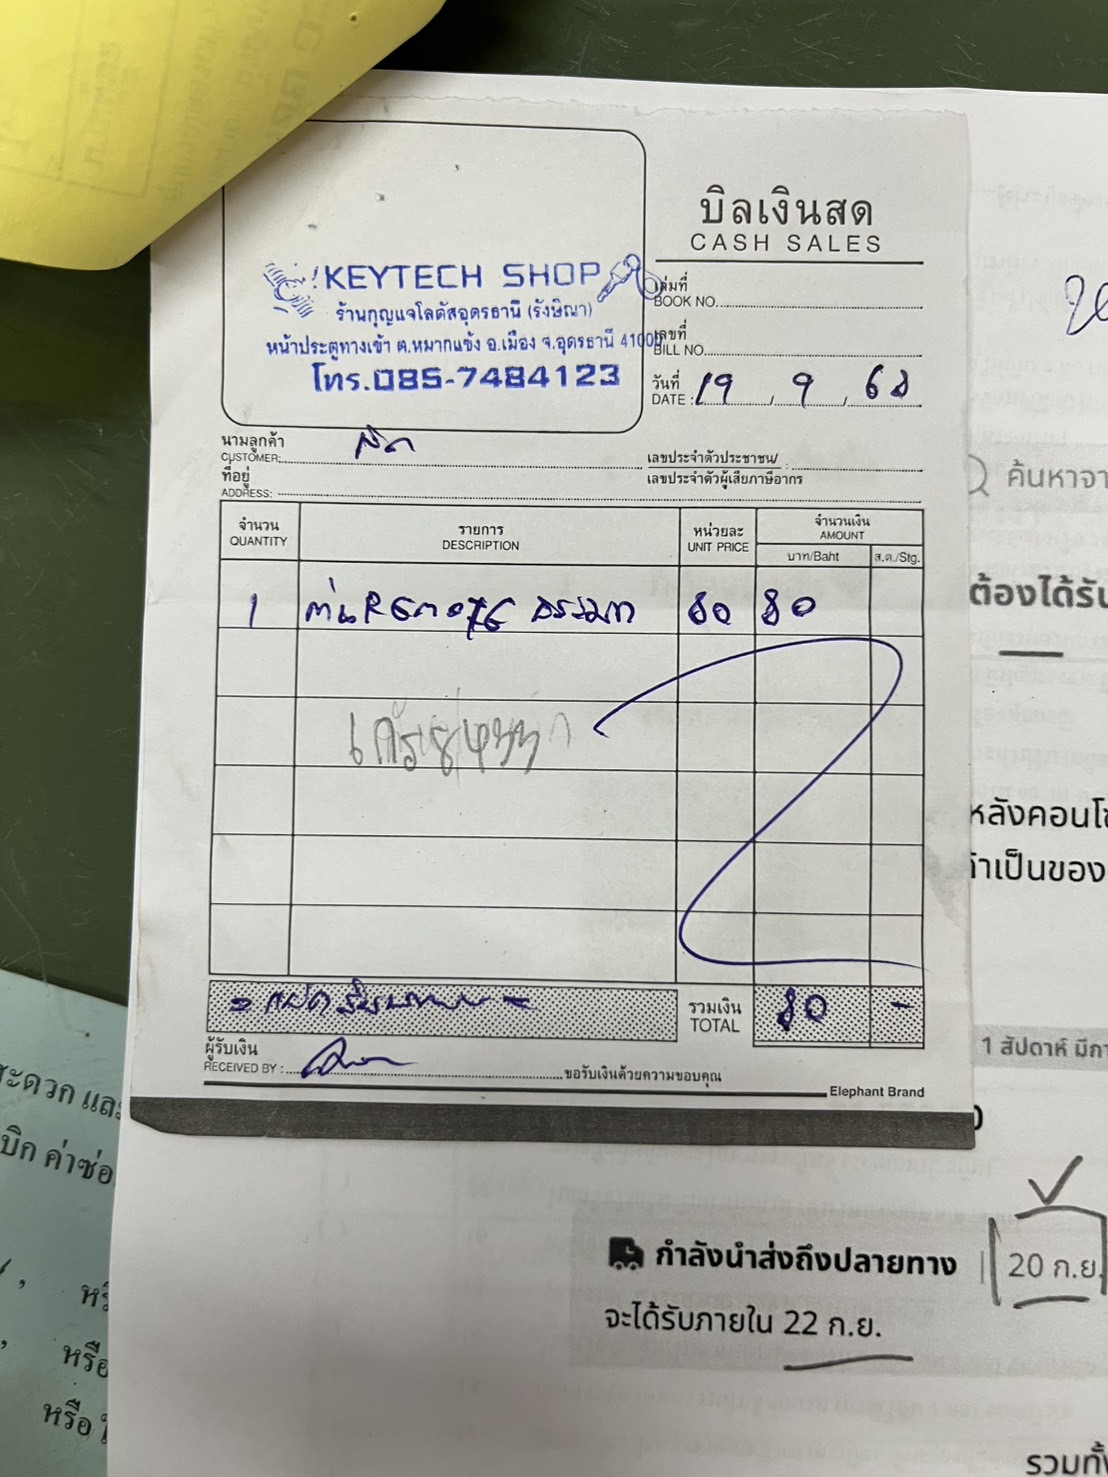 บิลเงินสด
CASH SALES
KEYTECH SHOP
ร้านกุญแจโลตัสอุดรธานี (รังษิณา)
หน้าประตูทางเข้า ต.หมากแข้ง อ.เมือง จ.อุดรธานี 41000
โทร.085-7484123
เล่มที่
BOOK NO.
เลขที่
BILL NO.
วันที่
DATE : 19 / 9 / 68
นามลูกค้า
CUSTOMER: สด
เลขประจำตัวประชาชน/
เลขประจำตัวผู้เสียภาษีอากร :
ที่อยู่
ADDRESS:
จำนวน
QUANTITY
รายการ
DESCRIPTION
หน่วยละ
UNIT PRICE
จำนวนเงิน
AMOUNT
บาท/Baht
ส.ต./Stg.
1 ถ่านREMOTE ธรรมดา 80 80
= แปดสิบบาท =
รวมเงิน
TOTAL
80 -
ผู้รับเงิน
RECEIVED BY :
ขอรับเงินด้วยความขอบคุณ
Elephant Brand
ค้นหาจา
ต้องได้รับ
หลังคอนโ
ถ้าเป็นของ
1 สัปดาห์ มีกา
สะดวก และ
บิก ค่าซ่อ
หรื
หรือ
หรือ
กำลังนำส่งถึงปลายทาง | 20 ก.ย.
จะได้รับภายใน 22 ก.ย.
รวมทั้